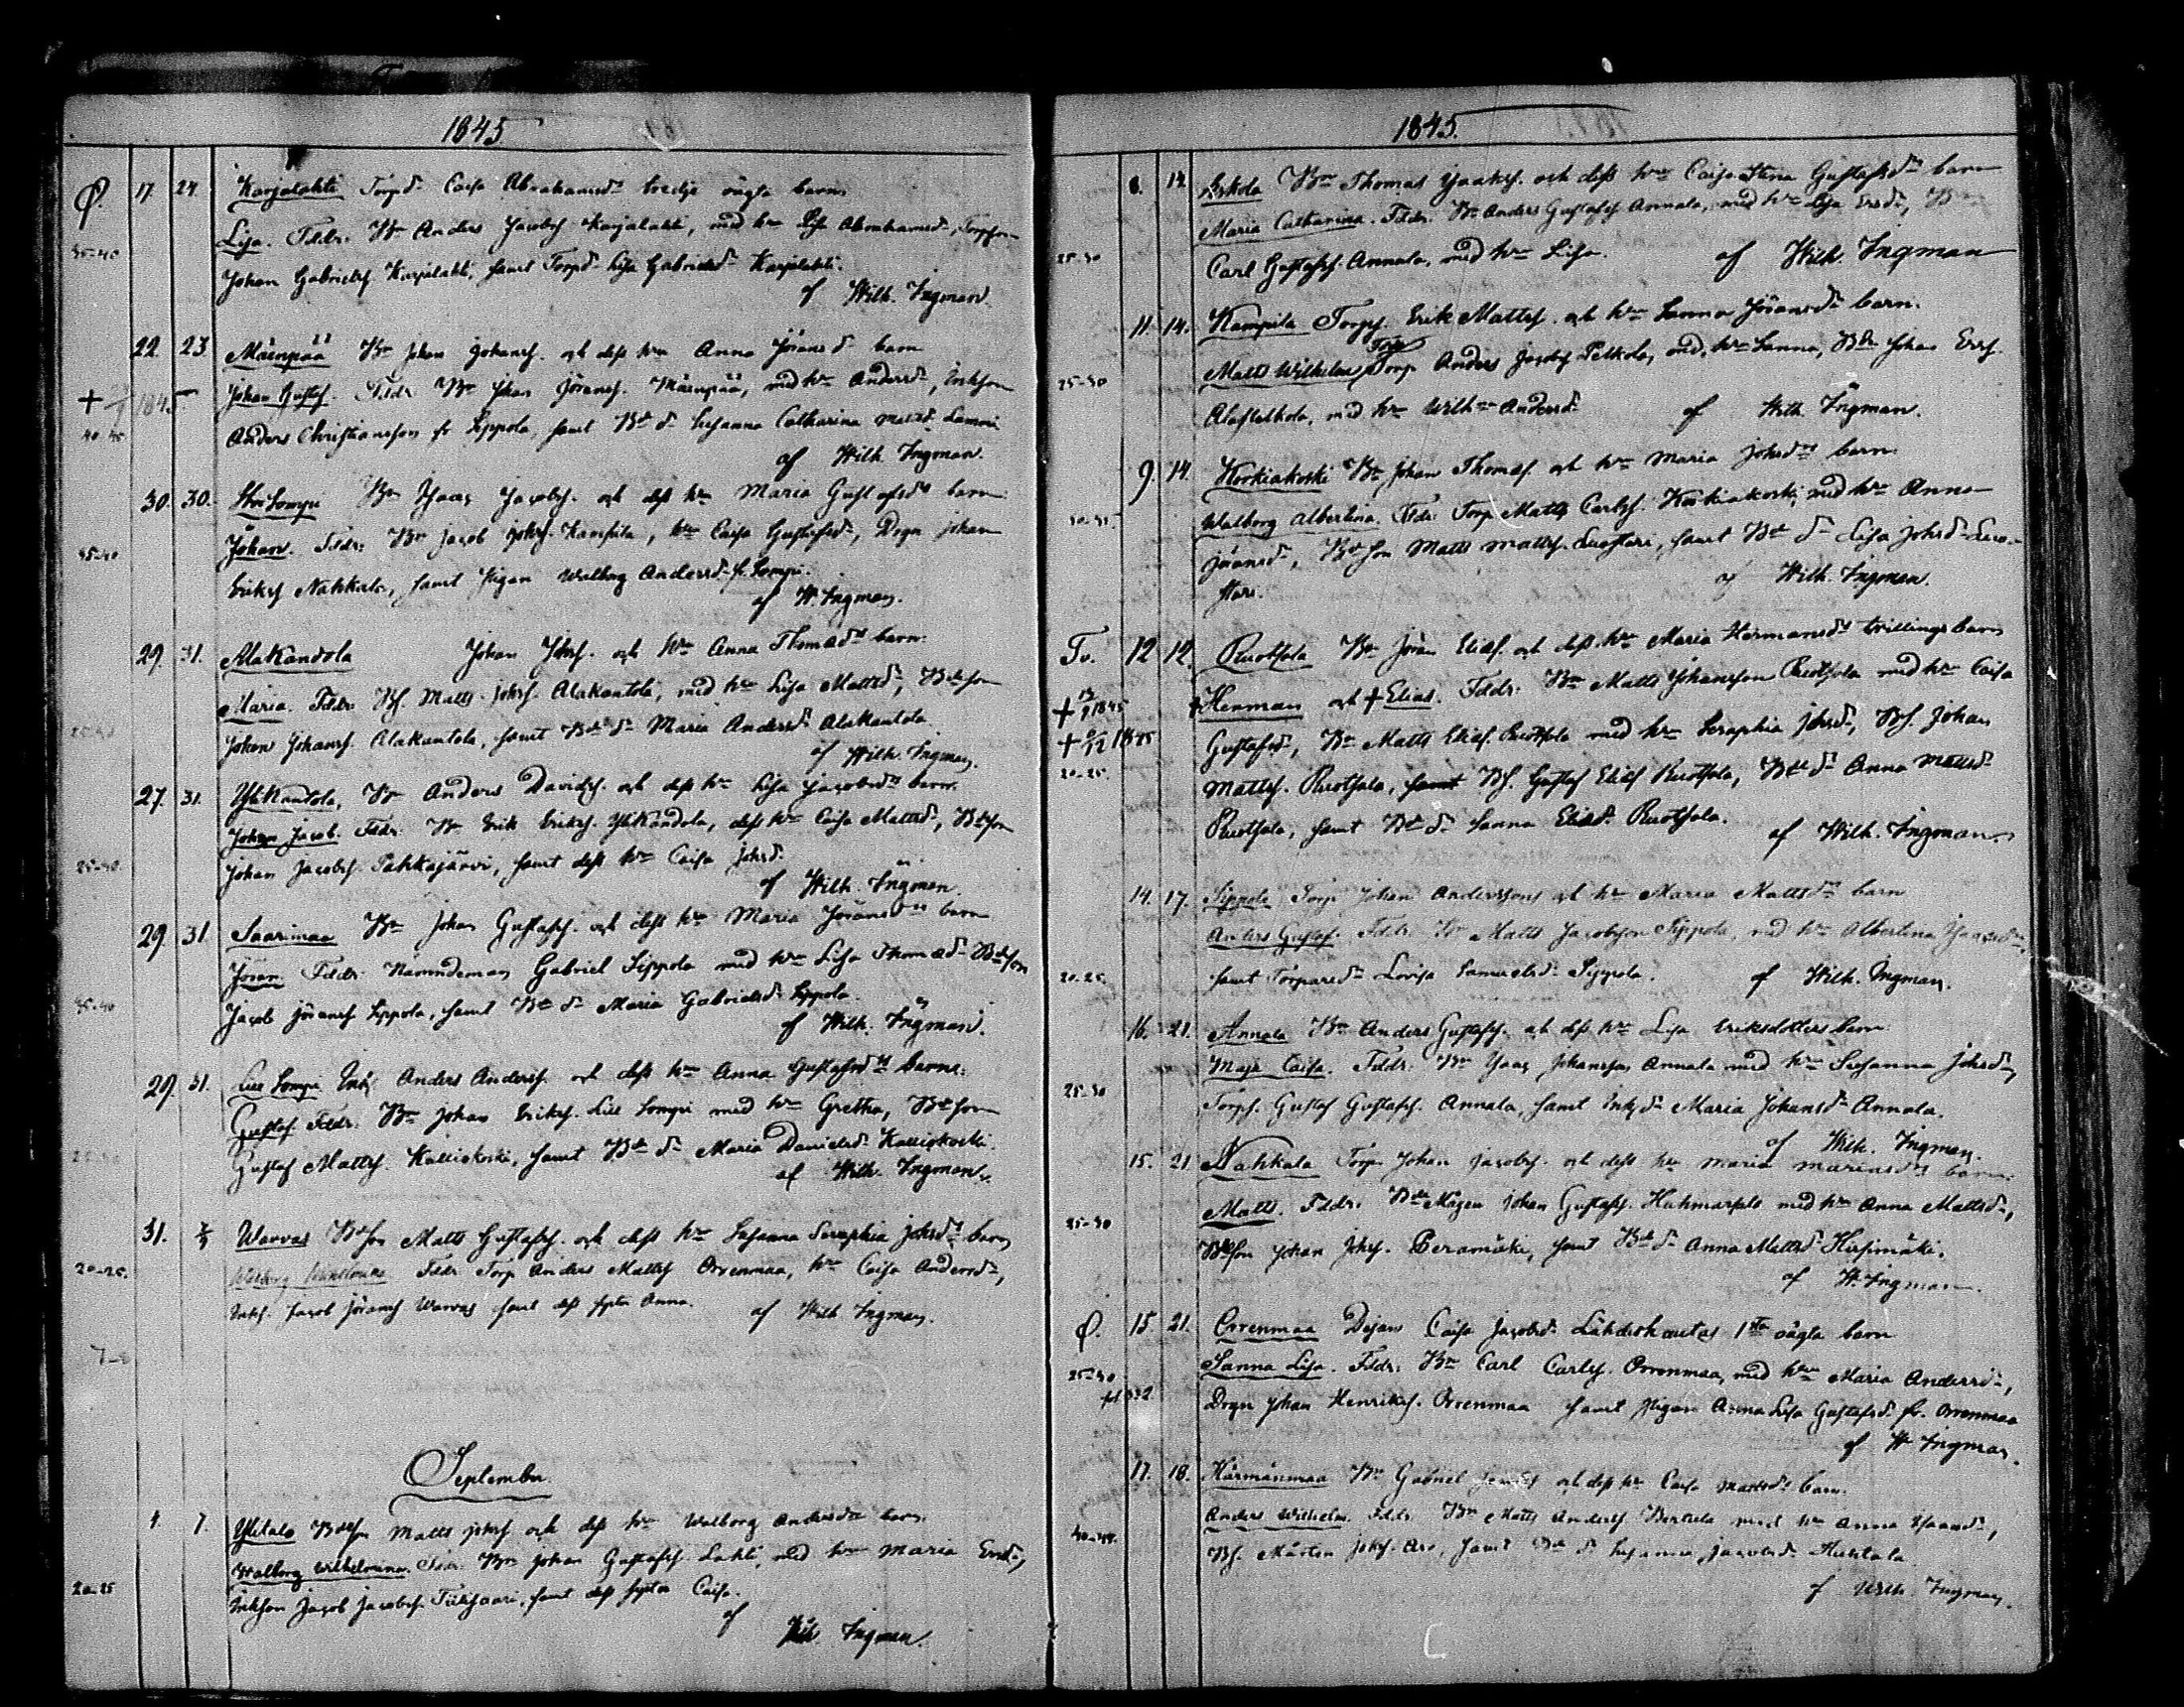 1845
Ø. 17. 24. Karjalahti Torp.d:r Caisa Abrahamsd:rs tredje oägta barn
Lisa. Fddr. Bn Anders Jacobsf Karjalahti, med hn Lisa Abrahamsd.
35-40 Johan Gabrielsf Karjalahti, samt Torpd:r Lisa Gabrielsd:r Karjalahti.
af Wilh. Ingman.
22. 23. Mäenpää Bn Johan Johansf. och dess hu Anna Jöransd:rs barn
+ 1845 Johan Gustaf. Fddr. Bn Johan Jöransf. Mäenpää, med hn Andersd:r, Inhyson
40-45 Anders Christiansson fr Sippola, samt Bd:r Susanna Catharina Lammi
af Wilh. Ingman.
30. 30. Bn Isaac Jacobsf. och dess hu Maria Gustafsd:rs barn
35-40 Johan. Fddr. Bn Jacob Johsf. Kampila, hn Caisa Gustafsd:r, Drgn Johan
Eriksf Nahkala, samt Pigan Walborg Andersd:r fr. Sompi.
af W. Ingman.
29. 31. Alakandola Johan Johsf. och hn Anna Thomasd:rs barn.
Maria. Fddr. Bf. Matts Johsf. Alakantola, med hn Lisa Mattsd:r, Bdeson
Johan Johansf. Alakantola, samt Bded:r Maria Andersd:r Alakantola.
af Wilh. Ingman.
27. 31. Ylikandola, Bn Anders Davidsf. och dess hn Lisa Jacobsd:rs barn.
Johan Jacob. Fddr. Bn Erik Eriksf. Ylikandola, dess hn Caisa Mattsd:r, Bdeson
25-30. Johan Jacobsf. Pahkajärvi, samt dess hn Caisa Johsd:r
af Wilh. Ingman
29. 31. Saarimaa Bn Johan Gustafsf. och dess hn Maria Jöransd:rs barn
Jöran. Fddr. Nämndeman Gabriel Sippola med hn Lisa Thomasd:r Bdeson
35-40 Jacob Jöransf Sippola, samt Bded:r Maria Gabrielsd:r Sippola.
af Wilh. Ingman.
29. 31. Lill Sompi Inh. Anders Andersf. och dess hn Anna Gustafsd:rs barn.
Gustaf Fddr. Bn Johan Eriksf. Lill Sompi med hn Gretha, Bdeson
Gustaf Mattsf. Kalliokoski, samt Bded:r Maria Danielsd:r Kalliokoski.
af Wilh. Ingman.
31. Warvas Bdeson Matts Gustafsf. och dess hn Susanna Seraphia Johsd:rs barn
20-25. Walborg Fddr. Torp. Anders Mattsf Orrenmaa, hn Caisa Andersd:r,
Inhs. Jacob Jöransf Warvas samt dess syster Anna. af Wilh Ingman.
September
4. 7. Ylitalo Bdeson Matts Johsf och dess hn Walborg Andersd:rs barn.
Walborg Wilhelmina. Fddr. Bn Johan Gustafsf. Lahti, med hn Maria Ersd:r,
20-25 Inhson Jacob Jacobsf. Tuksaari, samt dess syster Caisa.
af Wilh. Ingman.
1845.
8. 14. Eskola Bn Thomas Isaksf. och dess hn Caisa Stina Gustafsd:rs barn
Maria Catharina. Fddr. Bn Anders Gustafsf Annala, med hn Lisa Ersd:r, Bn
25-30 Carl Gustafsf. Annala, med hn Lisa. af Wilh. Ingman
11. 14. Kampila Torps. Erik Mattsf. och hn Sanna Jöransd:rs barn.
25-30 Matts Wilhelm. Torp. Anders Jacobsf Peltkola, med hn Sanna, Bn Johan Ersf.
med hn Wilh:na Andersd:r af Wilh. Ingman.
9. 14. Korkiakoski Bn Johan Thomasf och hn Maria Johsd:rs barn
Walborg Albertina. Fddr. Torp. Matts Carlsf. Korkiakoski, med hn Anna
Jöransd:r, Bdeson Matts Mattsf. Luostari, samt Bded:r Lisa Johsd:r Luo-
stari. af Wilh. Ingman.
Tv. 12 12. Ruotsala Bn Jöran Eliasf. och dess hn Maria Hermansd:rs tvillingebarn
+ 1845 +Herman och +Elias. Fddr. Bn Matts Johansson Ruotsala med hn Caisa
+ 1845 Gustafsd:r, Bn Matts Eliasf. Ruotsala med hn Seraphia Johsd:r, Bf. Johan
20-25. Mattsf. Ruotsala, samt Bf. Gustaf Eliasf Ruotsala, Bded:r Anna Mattsd:r
Ruotsala, samt Bded:r Sanna Eliasd:r Ruotsala. af Wilh. Ingman.
14. 17. Sippola Torp. Johan Anderssons och hn Maria Mattsd:rs barn
Anders Gustaf. Fddr. Bn Matts Jacobsson Sippola, med hn Albertina Isacsd:r,
20-25. samt Torpared:r Lovisa Samuelsd:r Sippola. af Wilh. Ingman.
16. 21. Annala Bn Anders Gustafsf. och dess hn Lisa Eriksdotters barn
Maja Caisa. Fddr. Bn Isaac Johansson Annala med hn Susanna Johsd:r,
25-30 Torps. Gustaf Gustafsf. Annala, samt Inhsd:r Maria Johansd:r Annala.
af Wilh. Ingman.
15. 21 Nahkala Torp. Johan Jacobsf. och dess hn Maria barn.
25-30 Matts. Fddr. Bdemågen Johan Gustafsf. Huhmarsalo med hn Anna Mattsd:r,
Bdeson Johan Johsf. Peramäki, samt Bded:r Anna Mattsd:r Hirsimäki.
af W. Ingman.
Ø. 15 21. Orrenmaa Dejan Caisa Jacobsd:r Lähdeshautas 1sta oägta barn
25-30 Sanna Lisa. Fddr. Bn Carl Carlsf. Orrenmaa, med hn Maria Andersd:r,
Drgn Johan Henriksf. Orrenmaa samt Pigan Anna Lisa Gustafsd:r fr. Orrenmaa
af W Ingman.
17. 18. Härmänmaa Bn Gabriel och dess hn Caisa Mattsd:rs barn.
Anders Wilhelm. Fddr. Bn Matts Andersf Bertula med hn Anna Isaacsd:r,
Bf. Mårten Johsf. Aro, samt Bded:r Susanna Jacobsd:r Huhtala
af Wilh. Ingman.